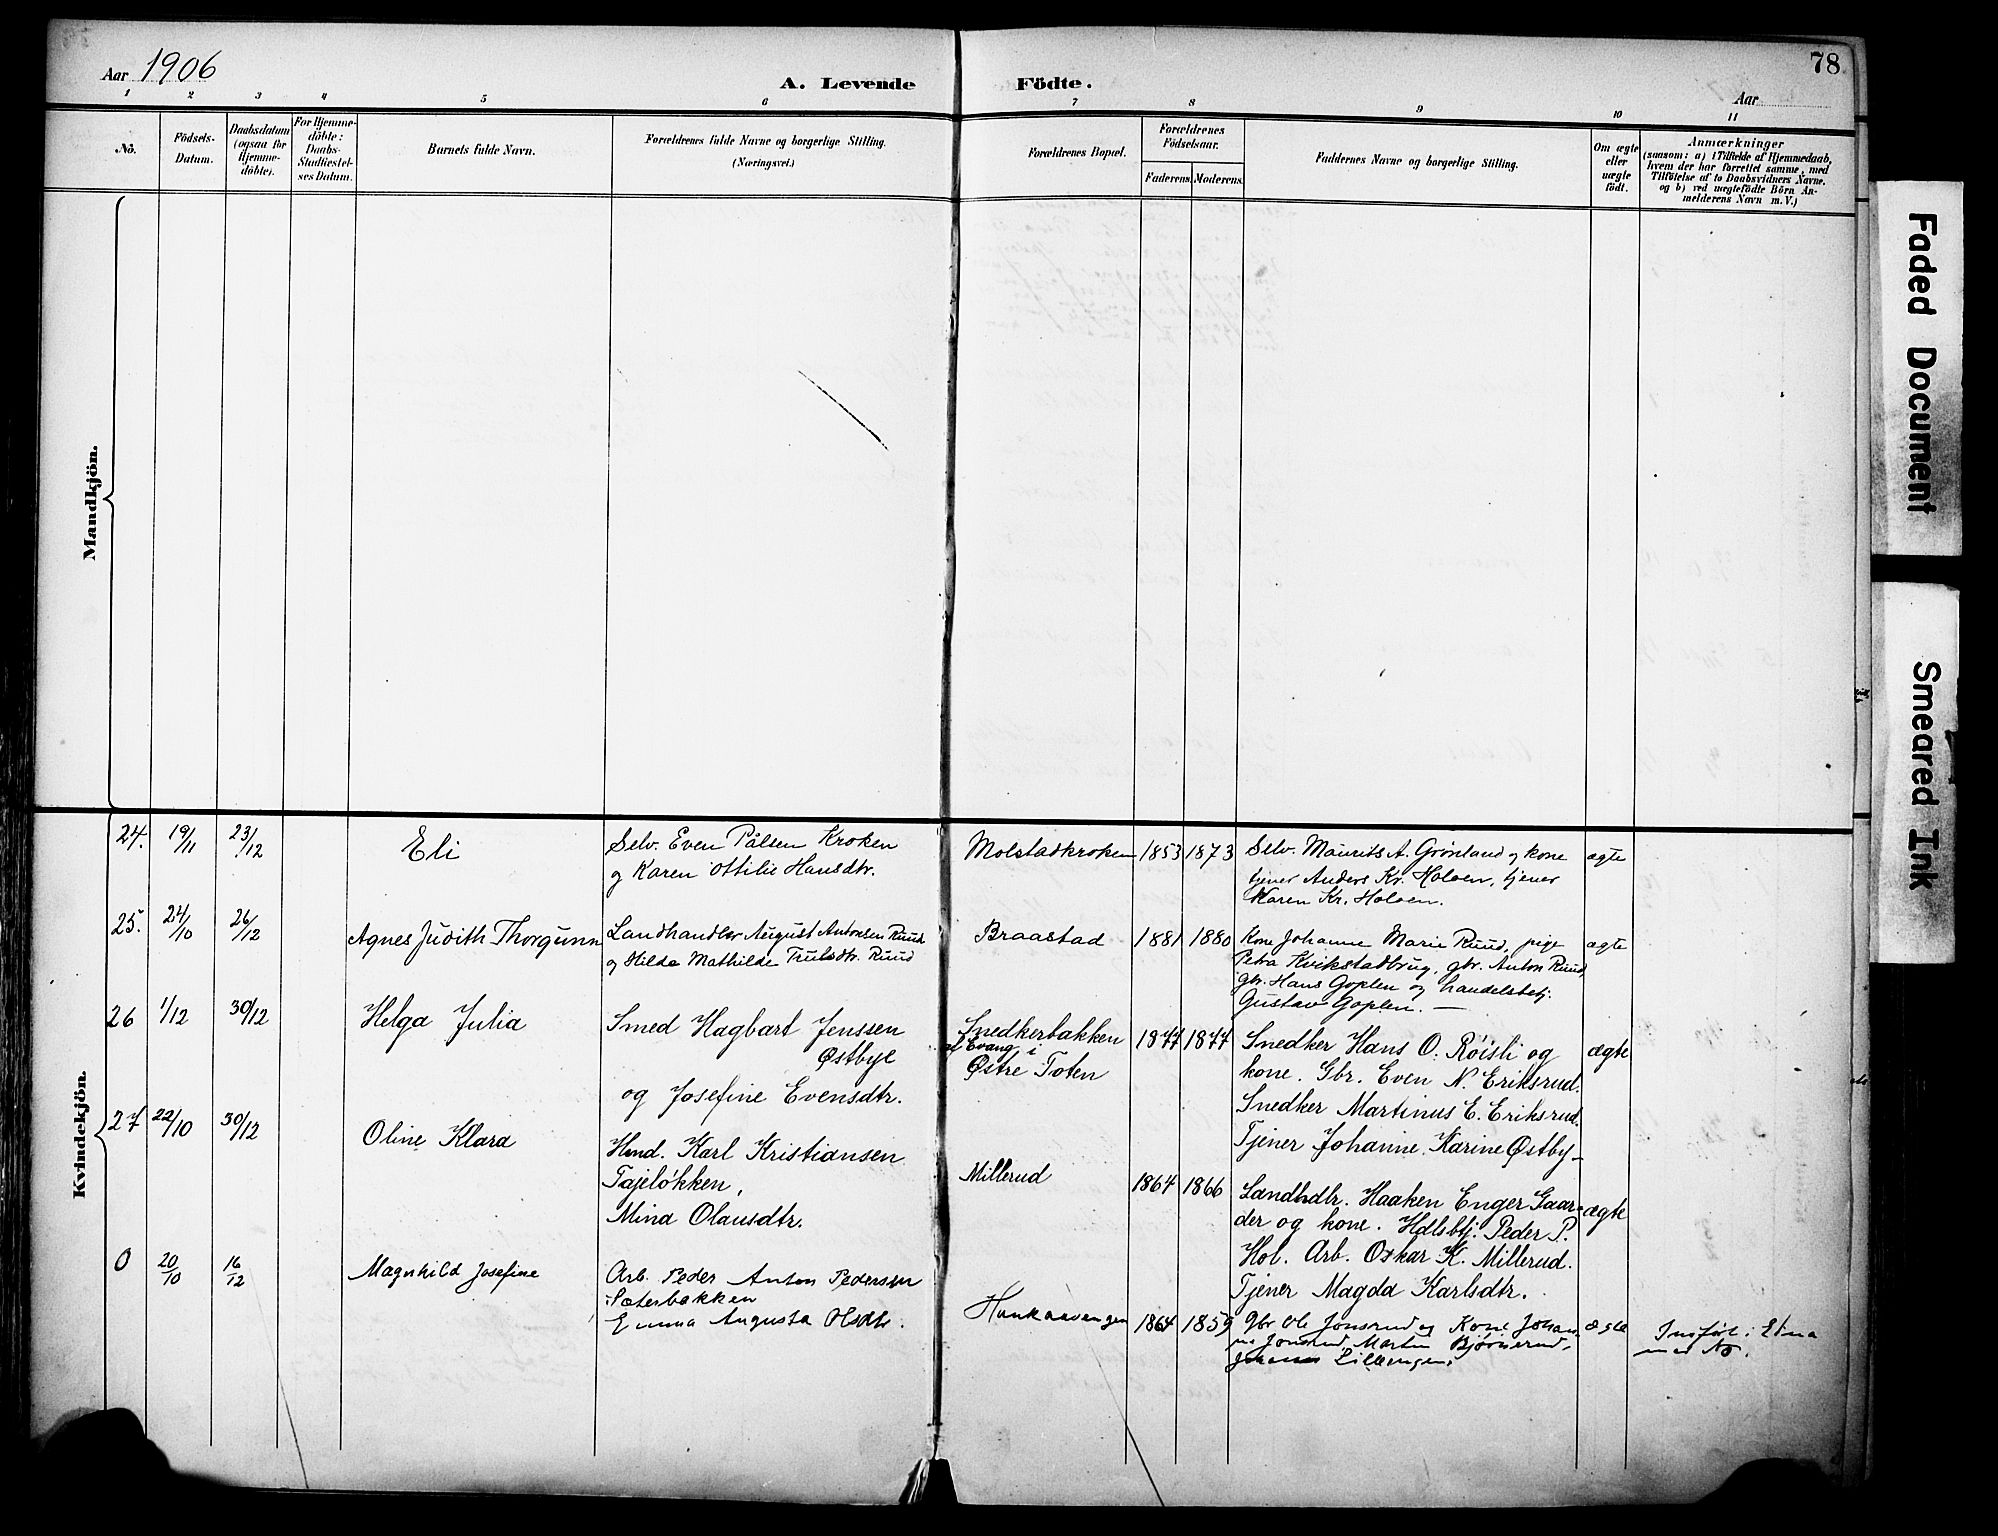 Aar 1906
A. Levende Födte.
78
Aar
1 2 3 4 5 6 7 8 9 10 11
No.
Födsels-
Datum.
Daabsdatum
(ogsaa for
Hjemme-
döbte).
For Hjemme-
döbte:
Daabs-
Stadfæstel-
ses Datum.
Barnets fulde Navn.
Forældrenes fulde Navne og borgerlige Stilling.
(Næringsvei.)
Forældrenes Bopæl.
Forældrenes
Födselsaar.
Faderens. Moderens.
Faddernes Navne og borgerlige Stilling.
Om ægte
eller
uægte
födt.
Anmærkninger
(saasom: a) i Tilfælde af Hjemmedaab,
hvem der har forrettet samme, med
Tilföielse af to Daabsvidners Navne.
og b) ved uægtefödte Börn An-
melderens Navn m. V.)
Mandkjön.
Kvindekjön.
24. 19/11 23/12 Eli
Selv. Even Pålsen Kroken
og Karen Ottilie Hansdtr.
Molstadkroken 1853 1873
Selv. Maurits A. Grønland og kone
tjener Anders Kr. Holoen, tjener
Karen Kr. Holoen.
ægte
25. 24/10 26/12 Agnes Judith Thorgunn
Landhandler August Antonsen Ruud
og Hilda Mathilde Trulsdtr. Ruud
Braastad 1881 1880
Kone Johanne Marie Ruud, pige
Petra Kvikstadbrug, gbr. Anton Ruud,
gbr. Hans Goplen og handelsbetj.
Gustav Goplen. —
ægte
26 1/12 30/12 Helga Julia
Smed Hagbart Jenssen
Østbye
og Josefine Evensdtr.
Snedkerbakken
af Evang i
Østre Toten
1877 1877
Snedker Hans O. Röisli og
kone. Gbr. Even N. Eriksrud.
Snedker Martinus E. Eriksrud.
Tjener Johanne Karine Østby—
ægte
27 22/10 30/12 Oline Klara
Hmd. Karl Kristiansen
Tajelökken,
Mina Olausdtr.
Millerud 1864 1866
Landhdlr. Haaken Enger Gaar-
der og kone. Hdlsbtj. Peder P.
Hol. Arb. Oskar K. Millerud.
Tjener Magda Karlsdtr.
ægte
0 20/10 16/12 Magnhild Josefine
Arb. Peder Anton Pedersen
Sæterbakken
Emma Augusta Olsdtr.
1864 1859
Gbr Ole Jonsrud og Kone Johan-
ne Jonsrud, Martin Bjørnerud,
Johannes Lilleengen.
ægte
Indført i
med No.
Faded Document
Smeared Ink